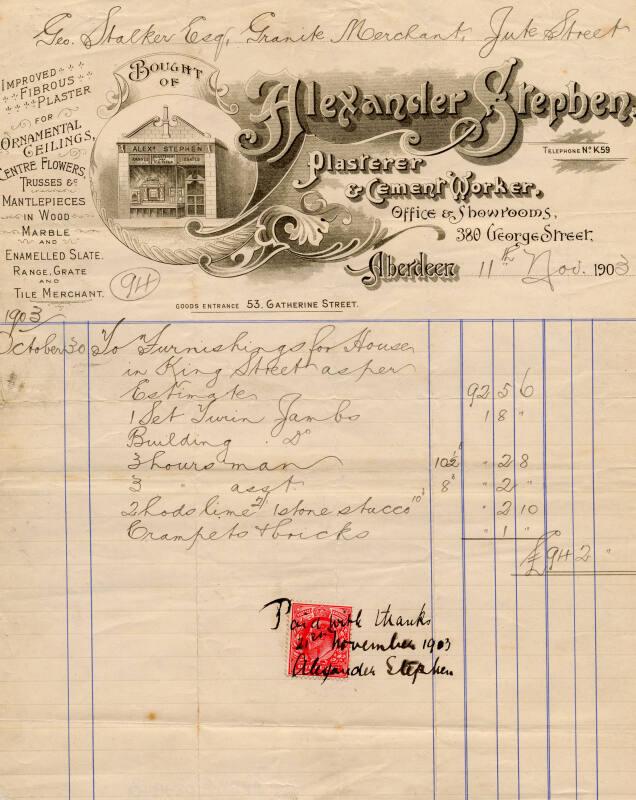 Geo. Stalker Esq, Granite Merchant, Jute Street
IMPROVED
FIBROUS
PLASTER
FOR
ORNAMENTAL
CEILINGS,
CENTRE FLOWERS,
TRUSSES &c
MANTLEPIECES
IN WOOD
MARBLE
AND
ENAMELLED SLATE.
RANGE, GRATE
AND
TILE MERCHANT.
BOUGHT
OF
ALEXR STEPHEN
Alexander Stephen,
TELEPHONE No. K59
Plasterer
& Cement Worker,
Office & Showrooms,
380 George Street,
Aberdeen 11th Nov. 1903
94
GOODS ENTRANCE 53. CATHERINE STREET.
1903
October 30 To Furnishings for House
in King Street as per
Estimate 92 5 6
1 Set Twin Jambs 1 8 "
Building Do
3 hours man 10½ " 2 8
3 " asst. 8 " 2 "
2 hods lime 1 stone stucco " 2 10
Crampets & bricks " 1 "
£94 2 "
Paid with thanks
November 1903
Alexander Stephen